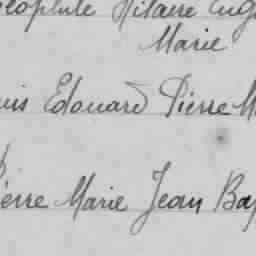 éophile Hilaire Eug
Marie
uis Edouard Pierre M
ierre Marie Jean Bap